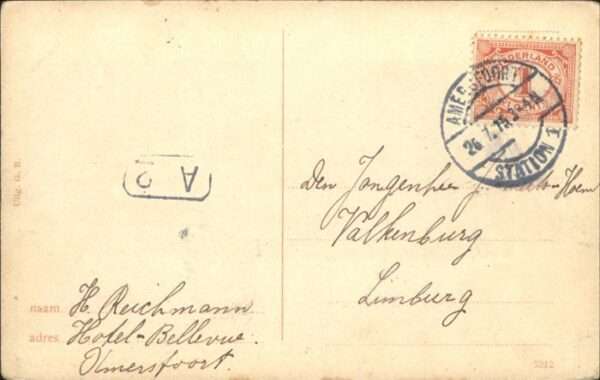 NEDERLAND
1
AMERSFOORT
26.7.15.3-4N
STATION 1
A 2
Den Jongenheer
Valkenburg
Limburg
naam H. Reichmann
adres. Hotel-Bellevue.
Amersfoort.
Uitg. G. B.
5212